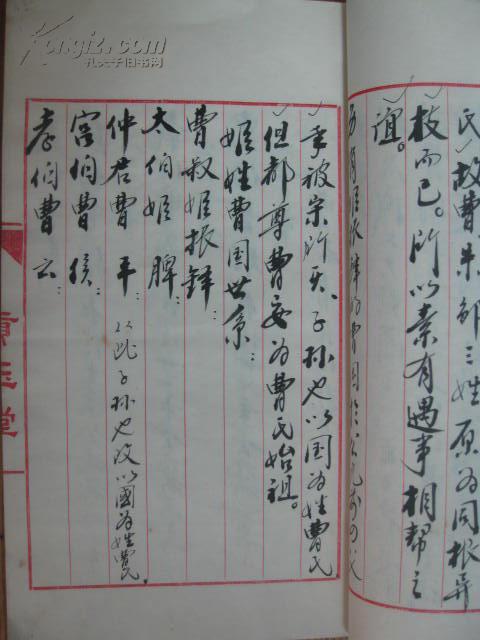 氏、故曹、朱、邾三姓原为同根异
枝而已。所以素有遇事相帮之
谊。
年被宋所灭、子孙也以国为姓曹氏
但都尊曹安为曹氏始祖。
姬姓曹国世系：
曹叔姬振铎：
太伯姬脾：
仲君曹平：以此子孙也改以國为姓曹氏.
宫伯曹侯：
孝伯曹云：
堂
Kongfz.com
孔夫子旧书网